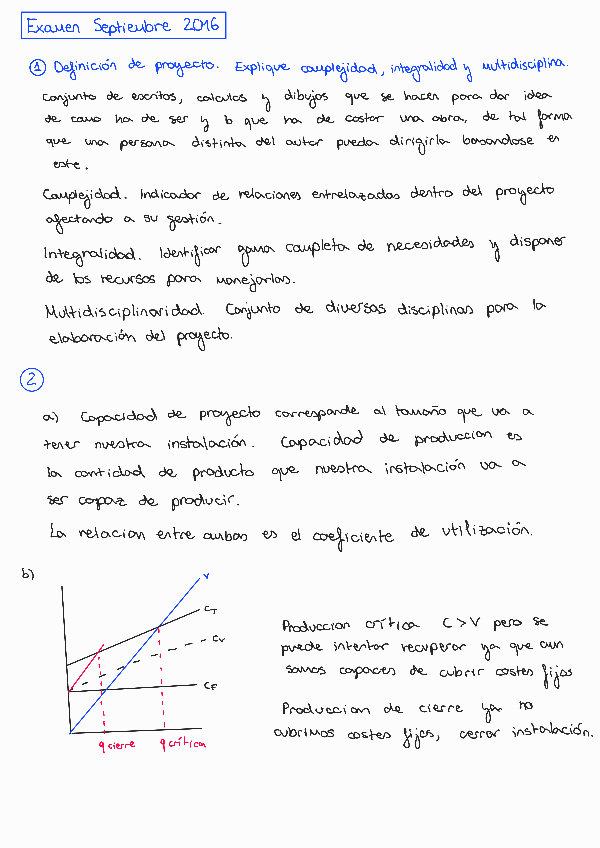 Examen Septiembre 2016
① Definición de proyecto. Explique complejidad, integralidad y multidisciplina.
Conjunto de escritos, calculos y dibujos que se hacen para dar idea
de como ha de ser y lo que ha de costar una obra, de tal forma
que una persona distinta del autor pueda dirigirla basandose en
este.
Complejidad. Indicador de relaciones entrelazadas dentro del proyecto
afectando a su gestión.
Integralidad. Identificar gama completa de necesidades y disponer
de los recursos para manejarlas.
Multidisciplinaridad. Conjunto de diversas disciplinas para la
elaboración del proyecto.
②
a) Capacidad de proyecto corresponde al tamaño que va a
tener nuestra instalación. Capacidad de produccion es
la cantidad de producto que nuestra instalación va a
ser capaz de producir.
La relacion entre ambas es el coeficiente de utilización.
b)
V
CT
CV
CF
q cierre q crítica
Produccion crítica C > V pero se
puede intentar recuperar ya que aun
somos capaces de cubrir costes fijos
Produccion de cierre ya no
cubrimos costes fijos, cerrar instalación.